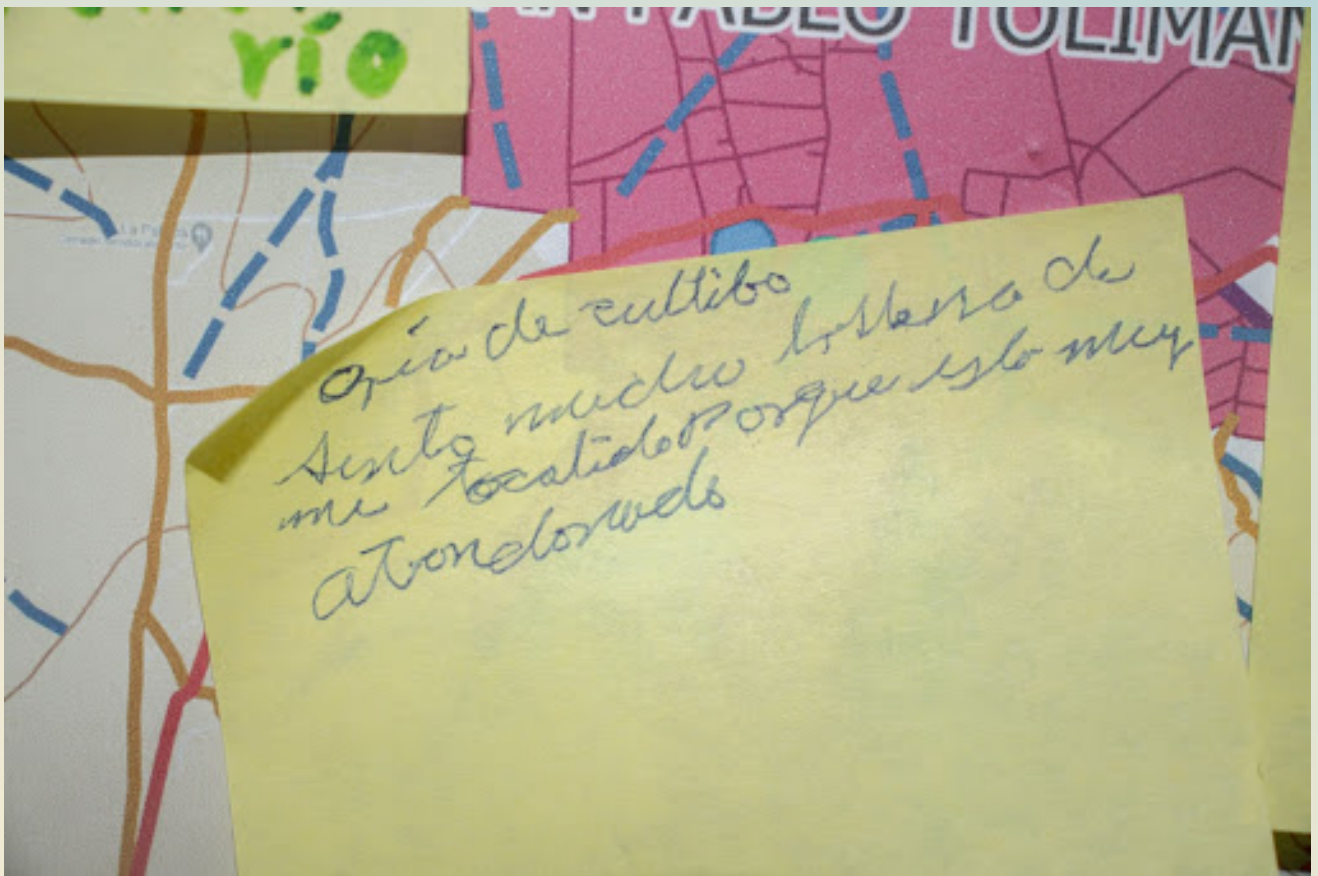 río
PABLO TOLIMAN
La P
de cultibo
siento mucho tristesa de
mi localidad Porque esta muy
abandonado